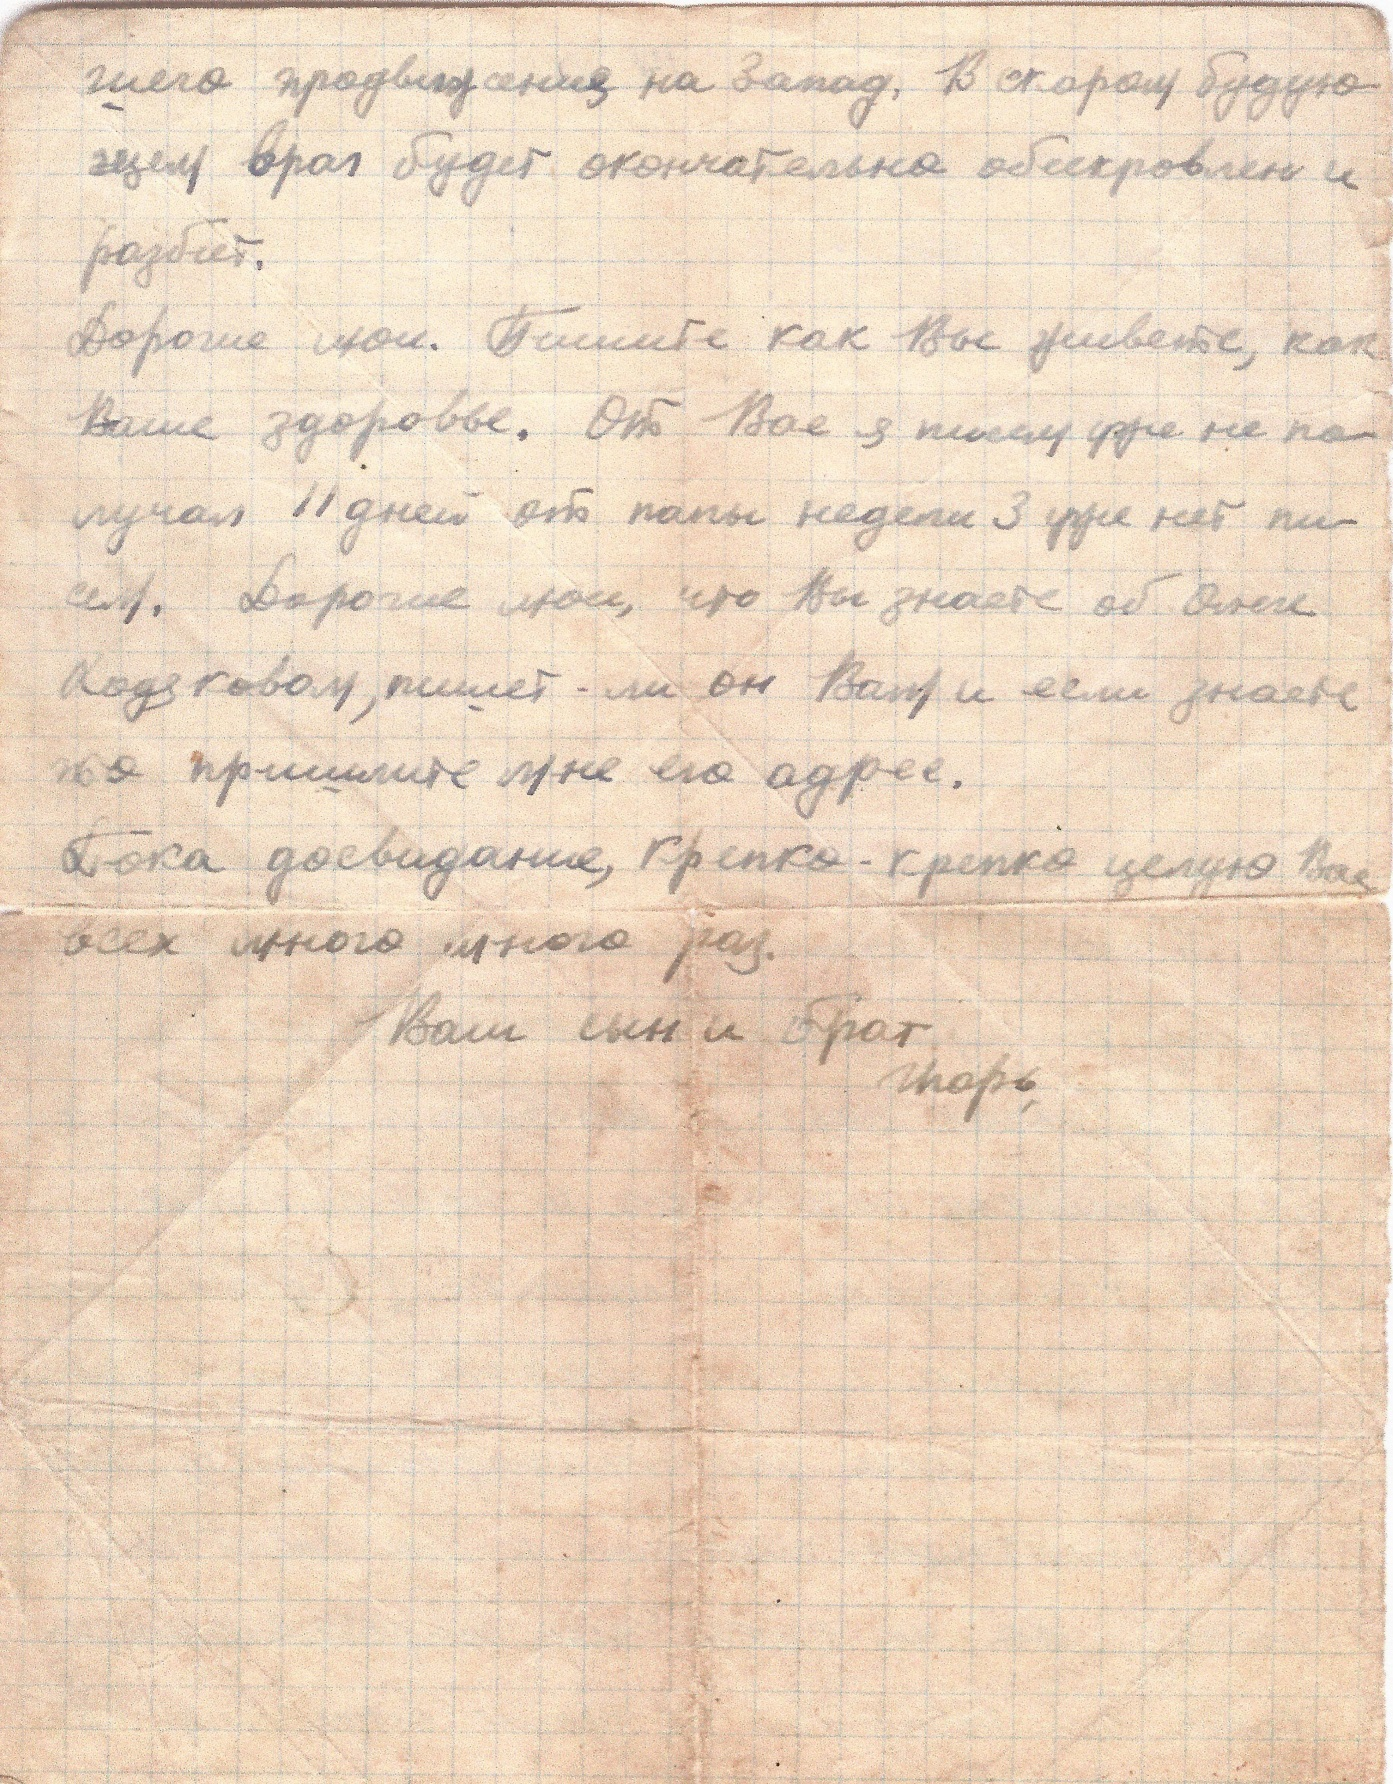 шего продвижения на Запад. В скором будую-
щем враг будет окончательно обескровлен и
разбит.
Дорогие мои. Пишите как Вы живете, как
Ваше здоровье. От Вас я писем уже не по-
лучал 11 дней от папы недели 3 уже нет пи-
сем. Дорогие мои, что Вы знаете об
пишет-ли он Вам и если знаете
то пришлите мне его адрес.
Пока досвидание, крепко-крепко целую Вас
всех много много раз.
Ваш сын и брат
Игорь